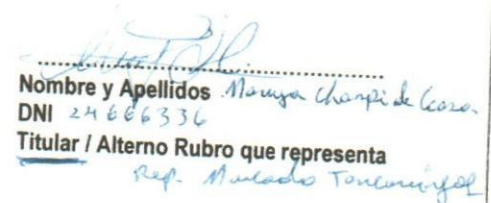 Nombre y Apellidos Maruja Champi de Ccasa
DNI 24666336
Titular / Alterno Rubro que representa
Rep. Mercado